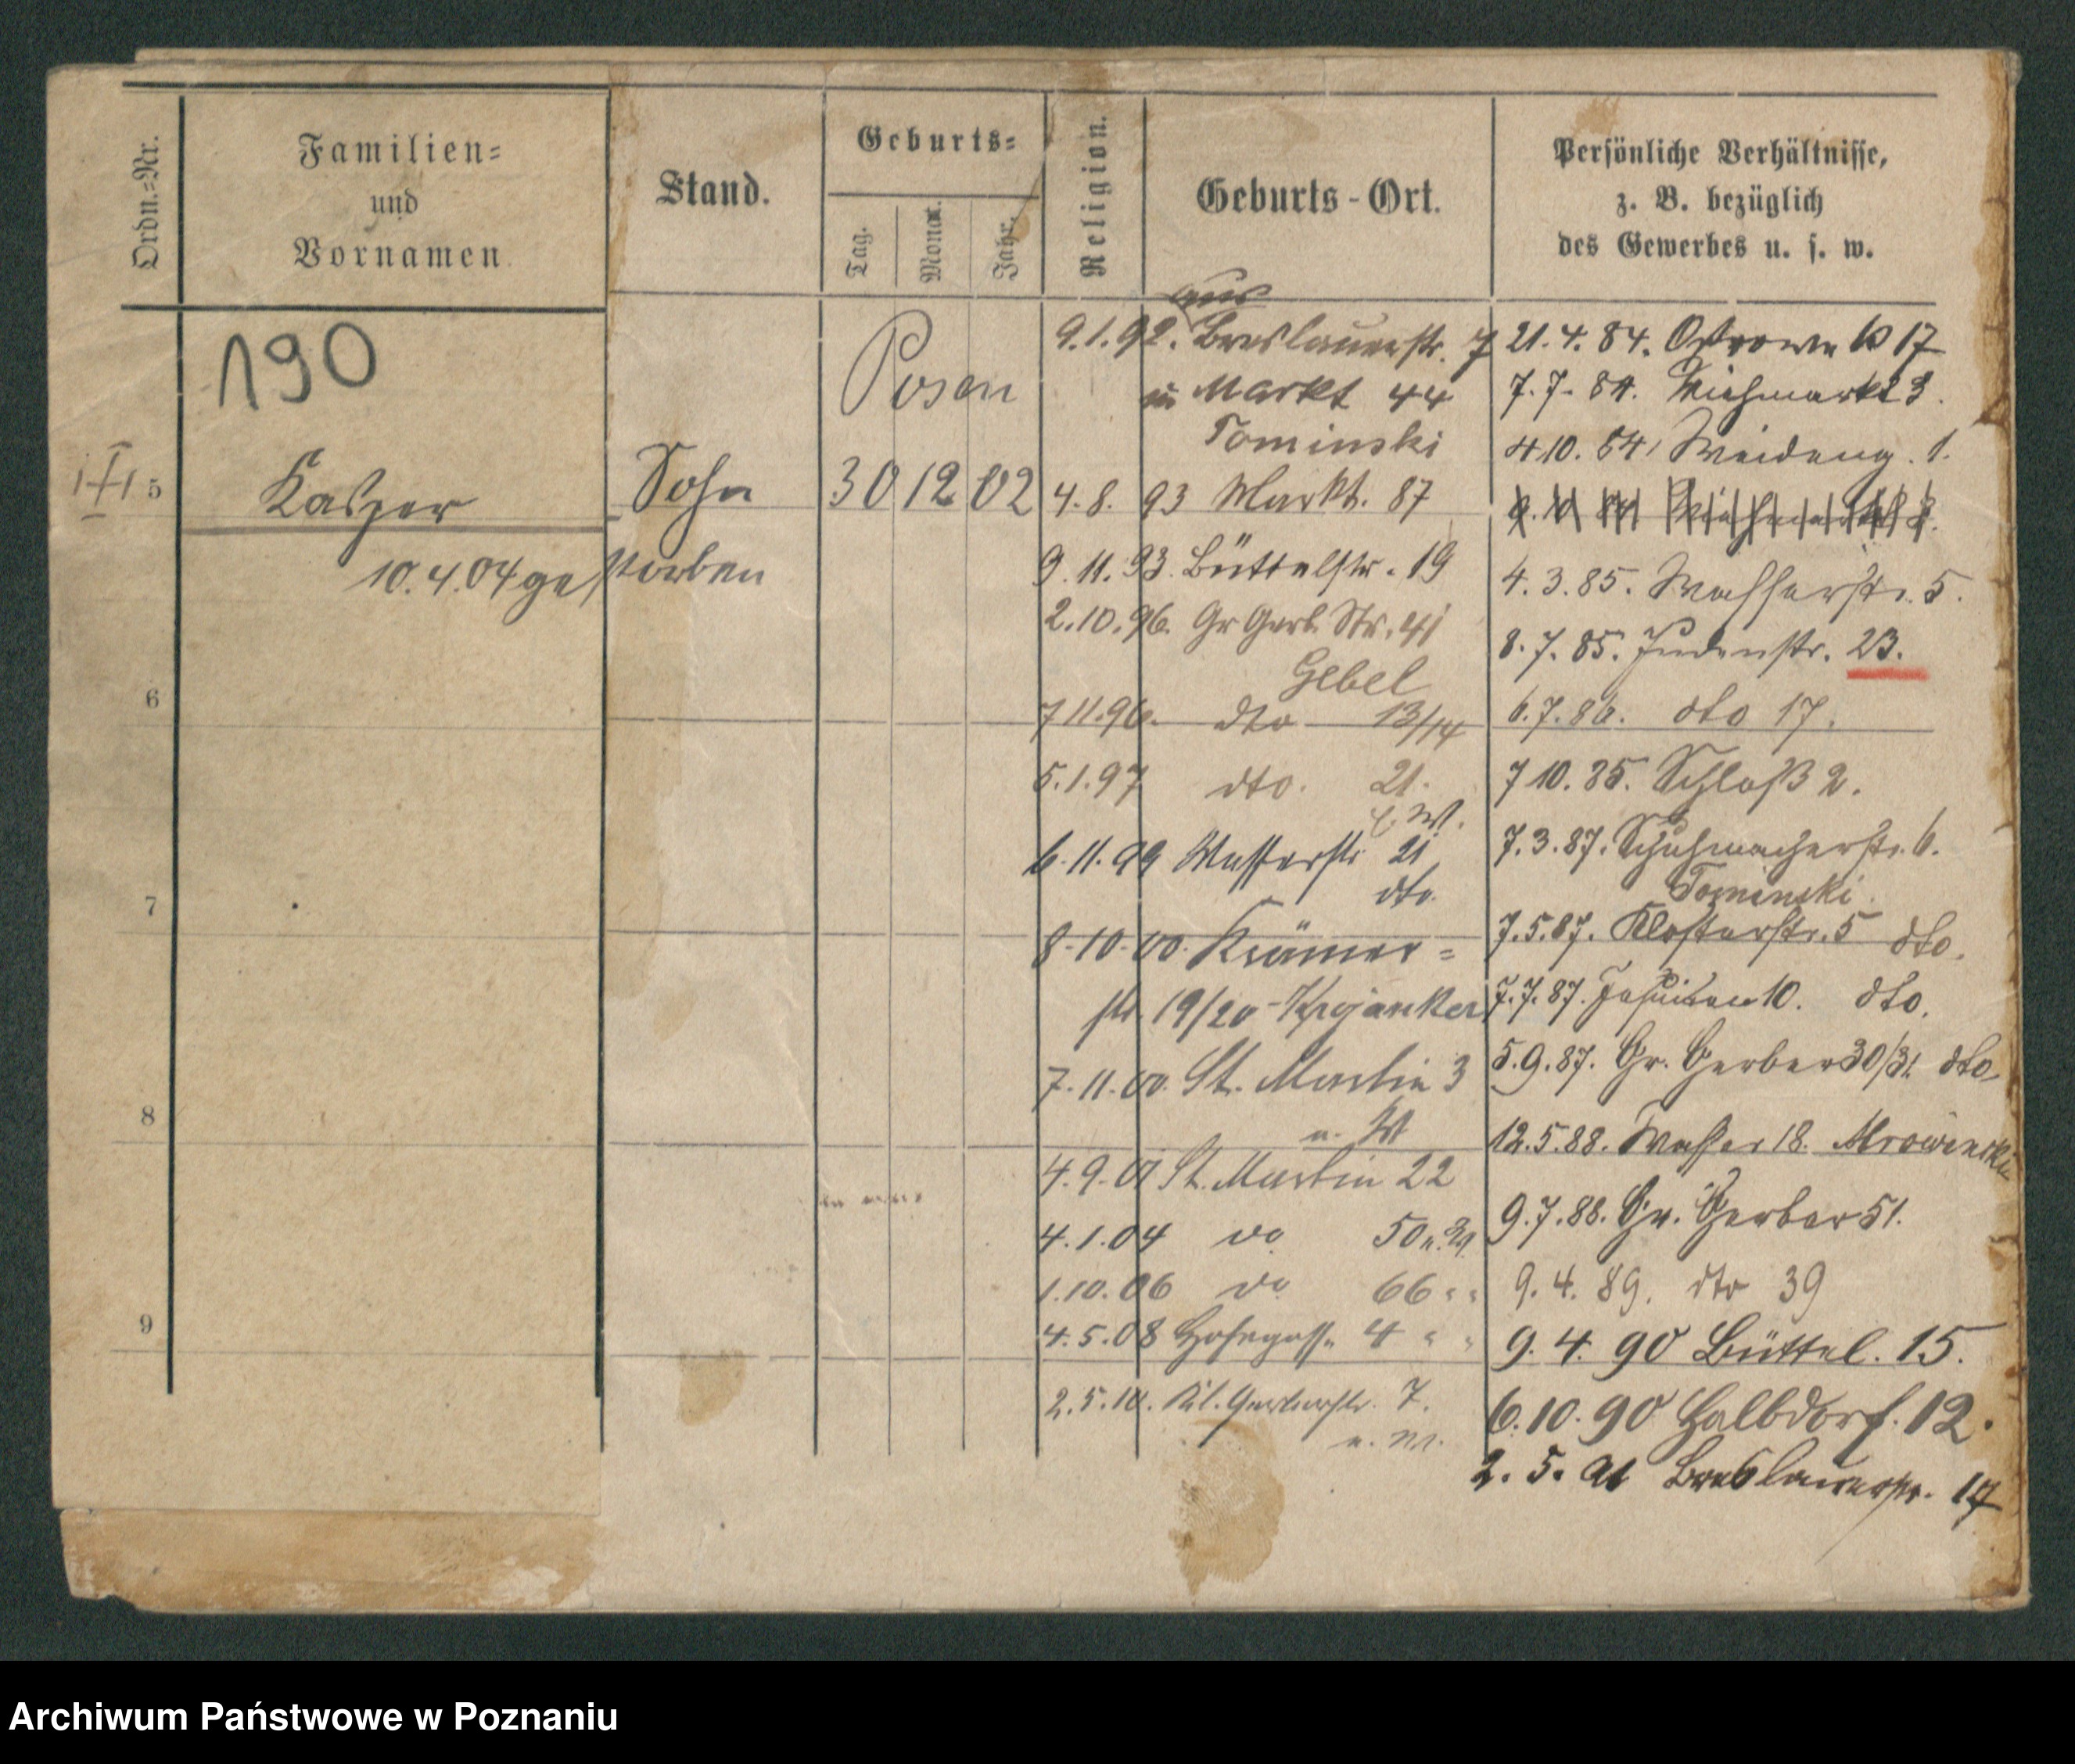 Ordn.=Nr.
Familien=
und
Vornamen
Stand.
Geburts=
Tag.
Monat.
Jahr.
Religion.
Geburts-Ort.
Persönliche Verhältnisse,
z. B. bezüglich
des Gewerbes u. s. w.
190
Posen
5
Kasper
Sohn
30 12 02
10.4.04 gestorben
6
7
8
9
aus
9.1.92. Breslauerstr. 7
Markt 44
Tominski
4.8.93 Markt. 87
9.11.93. Büttelstr. 19
2.10.96. Gr Gerb. Str. 41
Gebel
7 11.96. dto 13/14
5.1.97 dto. 21.
6.11.99 Wasserstr 21
dto.
8.10.00. Krämer=
str. 19/20 Krojanker
7.11.00. St. Martin 3
4.9.01 St. Martin 22
4.1.04 do 50
1.10.06 do 66 " "
4.5.08 Hohegasse 4 " "
2.5.10. Kl. Gerberstr. 7.
21.4.84. Ostrowek 17
7.7.84. Viehmarkt 3.
4 10.84. Weideng. 1.
4.3.85. Wasserstr. 5.
8.7.85. Judenstr. 23.
6.7.86. dto 17.
7 10.85. Schloß 2.
7.3.87. Schuhmacherstr. 6.
Tominski.
7.5.87. Klosterstr. 5 dto.
7.7.87. Jesuiten 10. dto.
5.9.87. Gr. Gerber 30/31 dto
12.5.88. Wasser 18. Mrowinski
9.7.88. Gr. Gerber 51.
9.4.89. dto 39
9.4.90 Büttel. 15.
6.10.90 Halbdorf. 12.
2.5.91 Breslauerstr. 17
Archiwum Państwowe w Poznaniu